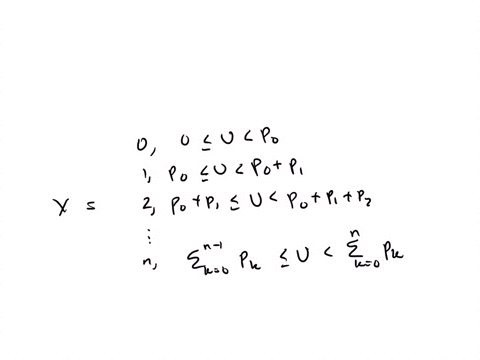 0, 0 ≤ U < P₀
1, P₀ ≤ U < P₀ + P₁
X = 2, P₀ + P₁ ≤ U < P₀ + P₁ + P₂
⋮
n, Σₖ₌₀ⁿ⁻¹ Pₖ ≤ U < Σₖ₌₀ⁿ Pₖ